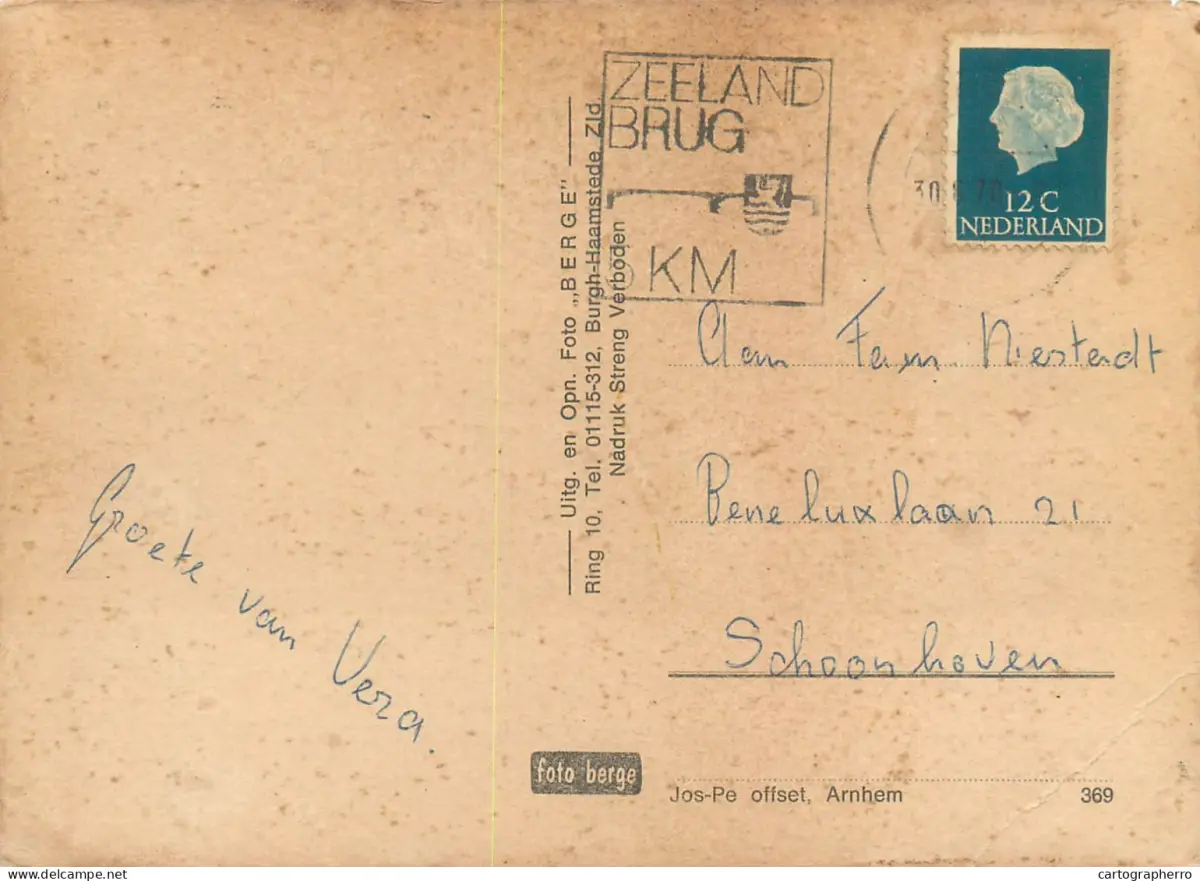 ZEELAND
BRUG
5 KM
30 70
12 C
NEDERLAND
Uitg. en Opn. Foto „BERGE"
Ring 10, Tel. 01115-312, Burgh-Haamstede, Zld.
Nadruk Streng Verboden
Aan Fam Niestadt
Beneluxlaan 21
Schoonhoven
Groete van Vera.
foto berge
Jos-Pe offset, Arnhem 369
delcampe.net
cartographerro